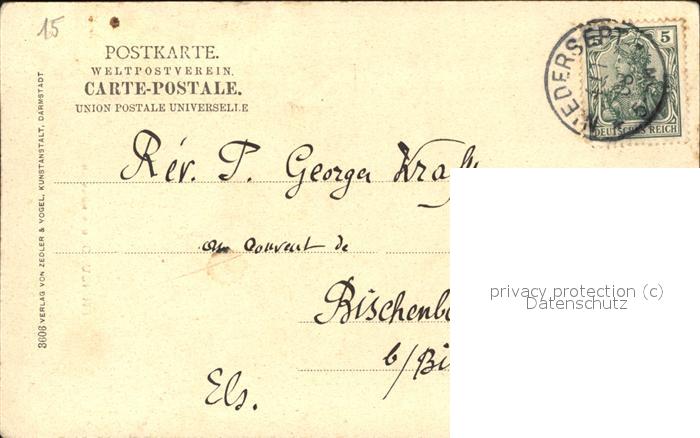 15
POSTKARTE.
WELTPOSTVEREIN.
CARTE-POSTALE.
UNION POSTALE UNIVERSELLE
5
DEUTSCHES REICH
NIEDERSEPT
Rév. P. Georges
au couvent de
Bischenb
b/Bi
Els.
3608 VERLAG VON ZEDLER & VOGEL, KUNSTANSTALT, DARMSTADT
privacy protection (c)
Datenschutz